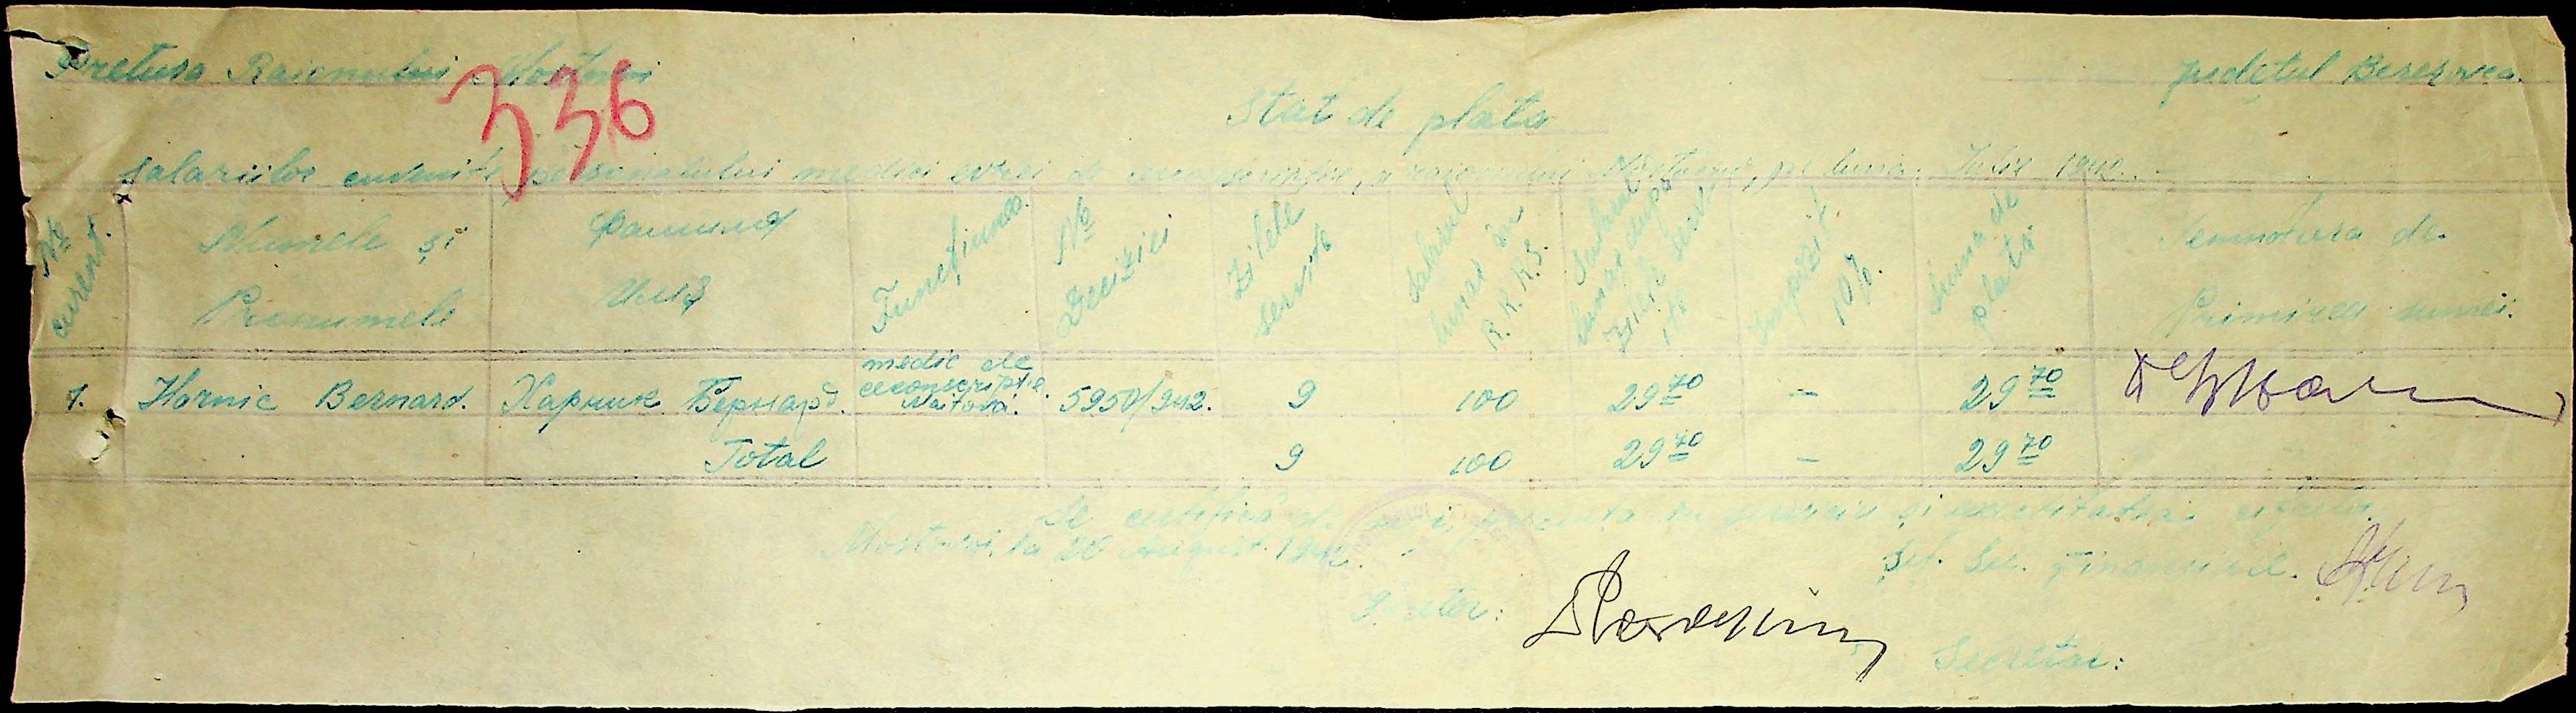 Pretura Raionului Mostovoi
județul Berezovca.
336
Stat de plata
salariilor cuvenite personalului medici evrei de circumscripție, a raionului Mostovoi, pe luna Iulie 1942.
№ curent.
Numele și Prenumele
Фамилия Имя
Funcțiunea.
№ Deciziei
Zilele servite
Salariul lunar în R.K.K.S.
Salariul lunar după zilele servite
Impozit 10%.
Suma de plată
Semnătura de Primirea sumei.
1. Hornic Bernard. Харник Бернард. medic de circonscripție 5950/942. 9 100 29 70 - 29 70
Total 9 100 29 70 - 29 70
Se certifică de noi, prezența în serviciu și
Mostovoi, la 20 August 1942.
Șef. Sec. Financiare.
Pretor:
Secretar: